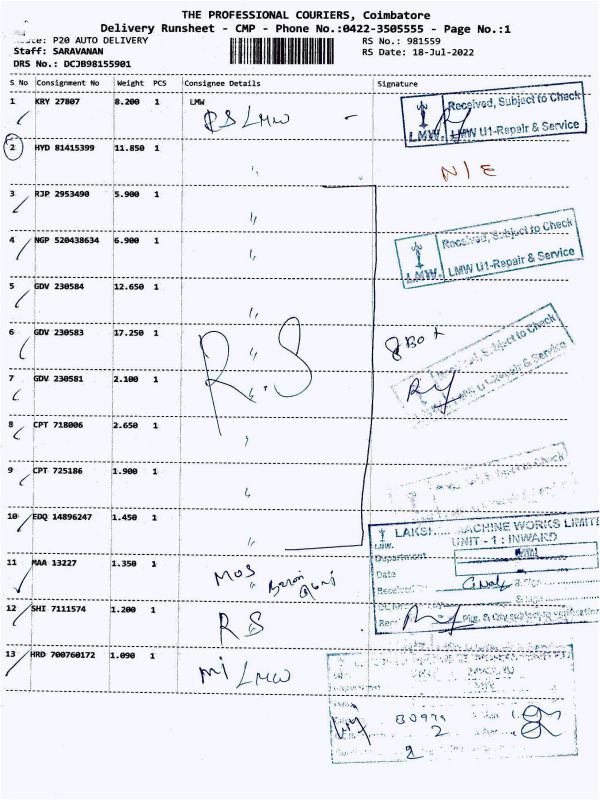 THE PROFESSIONAL COURIERS, Coimbatore
Delivery Runsheet - CMP - Phone No.:0422-3505555 - Page No.:1
P20 AUTO DELIVERY RS No.: 981559
Staff: SARAVANAN RS Date: 18-Jul-2022
DRS No.: DCJB98155901
S No Consignment No Weight PCS Consignee Details Signature
1 KRY 27807 8.200 1 LMW
RS LMW -
Received, Subject to Check
LMW. LMW U1-Repair & Service
2 HYD 81415399 11.850 1 "
N/E
3 RJP 2953490 5.900 1 "
4 NGP 520438634 6.900 1 "
Received, Subject to Check
LMW. LMW U1-Repair & Service
5 GDV 230584 12.650 1 "
6 GDV 230583 17.250 1 "
RS
8 Box
Received, Subject to Check
U1-Repair & Service
7 GDV 230581 2.100 1 "
8 CPT 718006 2.650 1 "
9 CPT 725186 1.900 1 "
Subject to Check
10 EDQ 14896247 1.450 1 "
MACHINE WORKS LIMITE
LMW. UNIT - 1 : INWARD
Department
Date
Received
11 MAA 13227 1.350 1 "
MOS
12 SHI 7111574 1.200 1
RS
Pkg. & Qty subject to verification
13 HRD 700760172 1.090 1
LMW
2
2